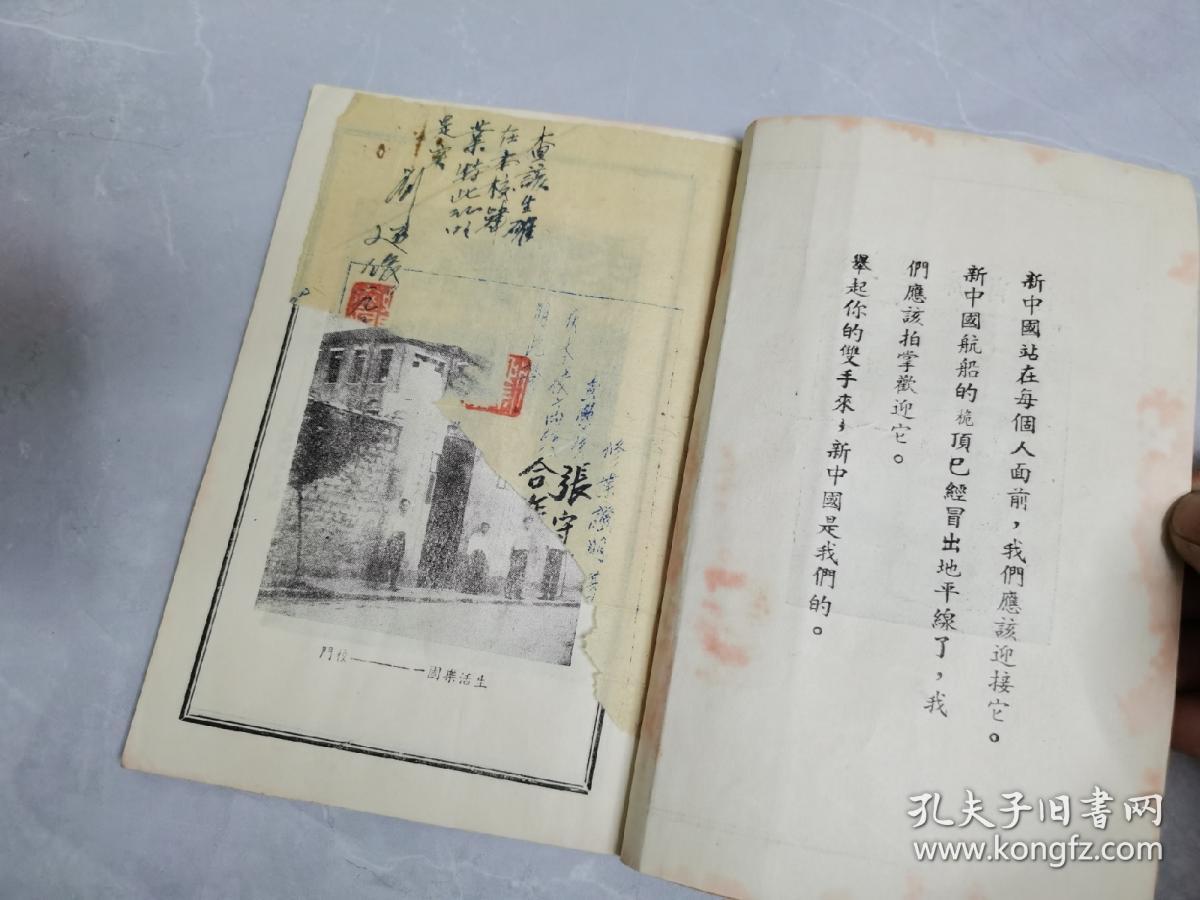 新中國站在每個人面前，我們應該迎接它。
新中國航船的桅頂已經冒出地平線了，我
們應該拍掌歡迎它。
舉起你的雙手來，新中國是我們的。
查該生確
在本校肄
業特此証明
是實
劉
修業證明書
張守
合
生活樂園————校門
孔夫子旧书网
www.kongfz.com